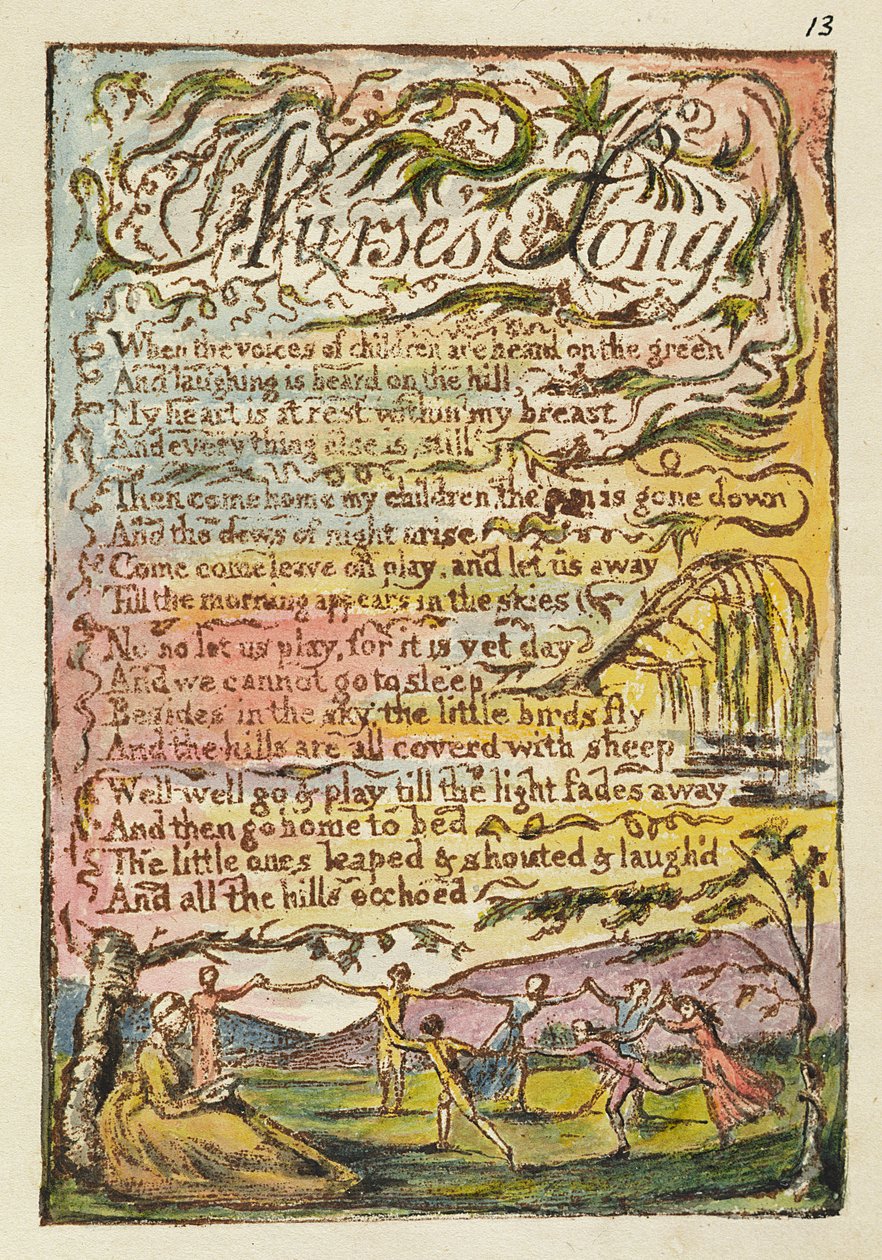 13
Nurse's Song
When the voices of children are heard on the green
And laughing is heard on the hill
My heart is at rest within my breast
And every thing else is still
Then come home my children, the sun is gone down
And the dews of night arise
Come come leave off play, and let us away
Till the morning appears in the skies
No no let us play, for it is yet day
And we cannot go to sleep
Besides in the sky, the little birds fly
And the hills are all coverd with sheep
Well well go & play till the light fades away
And then go home to bed
The little ones leaped & shouted & laugh'd
And all the hills ecchoed